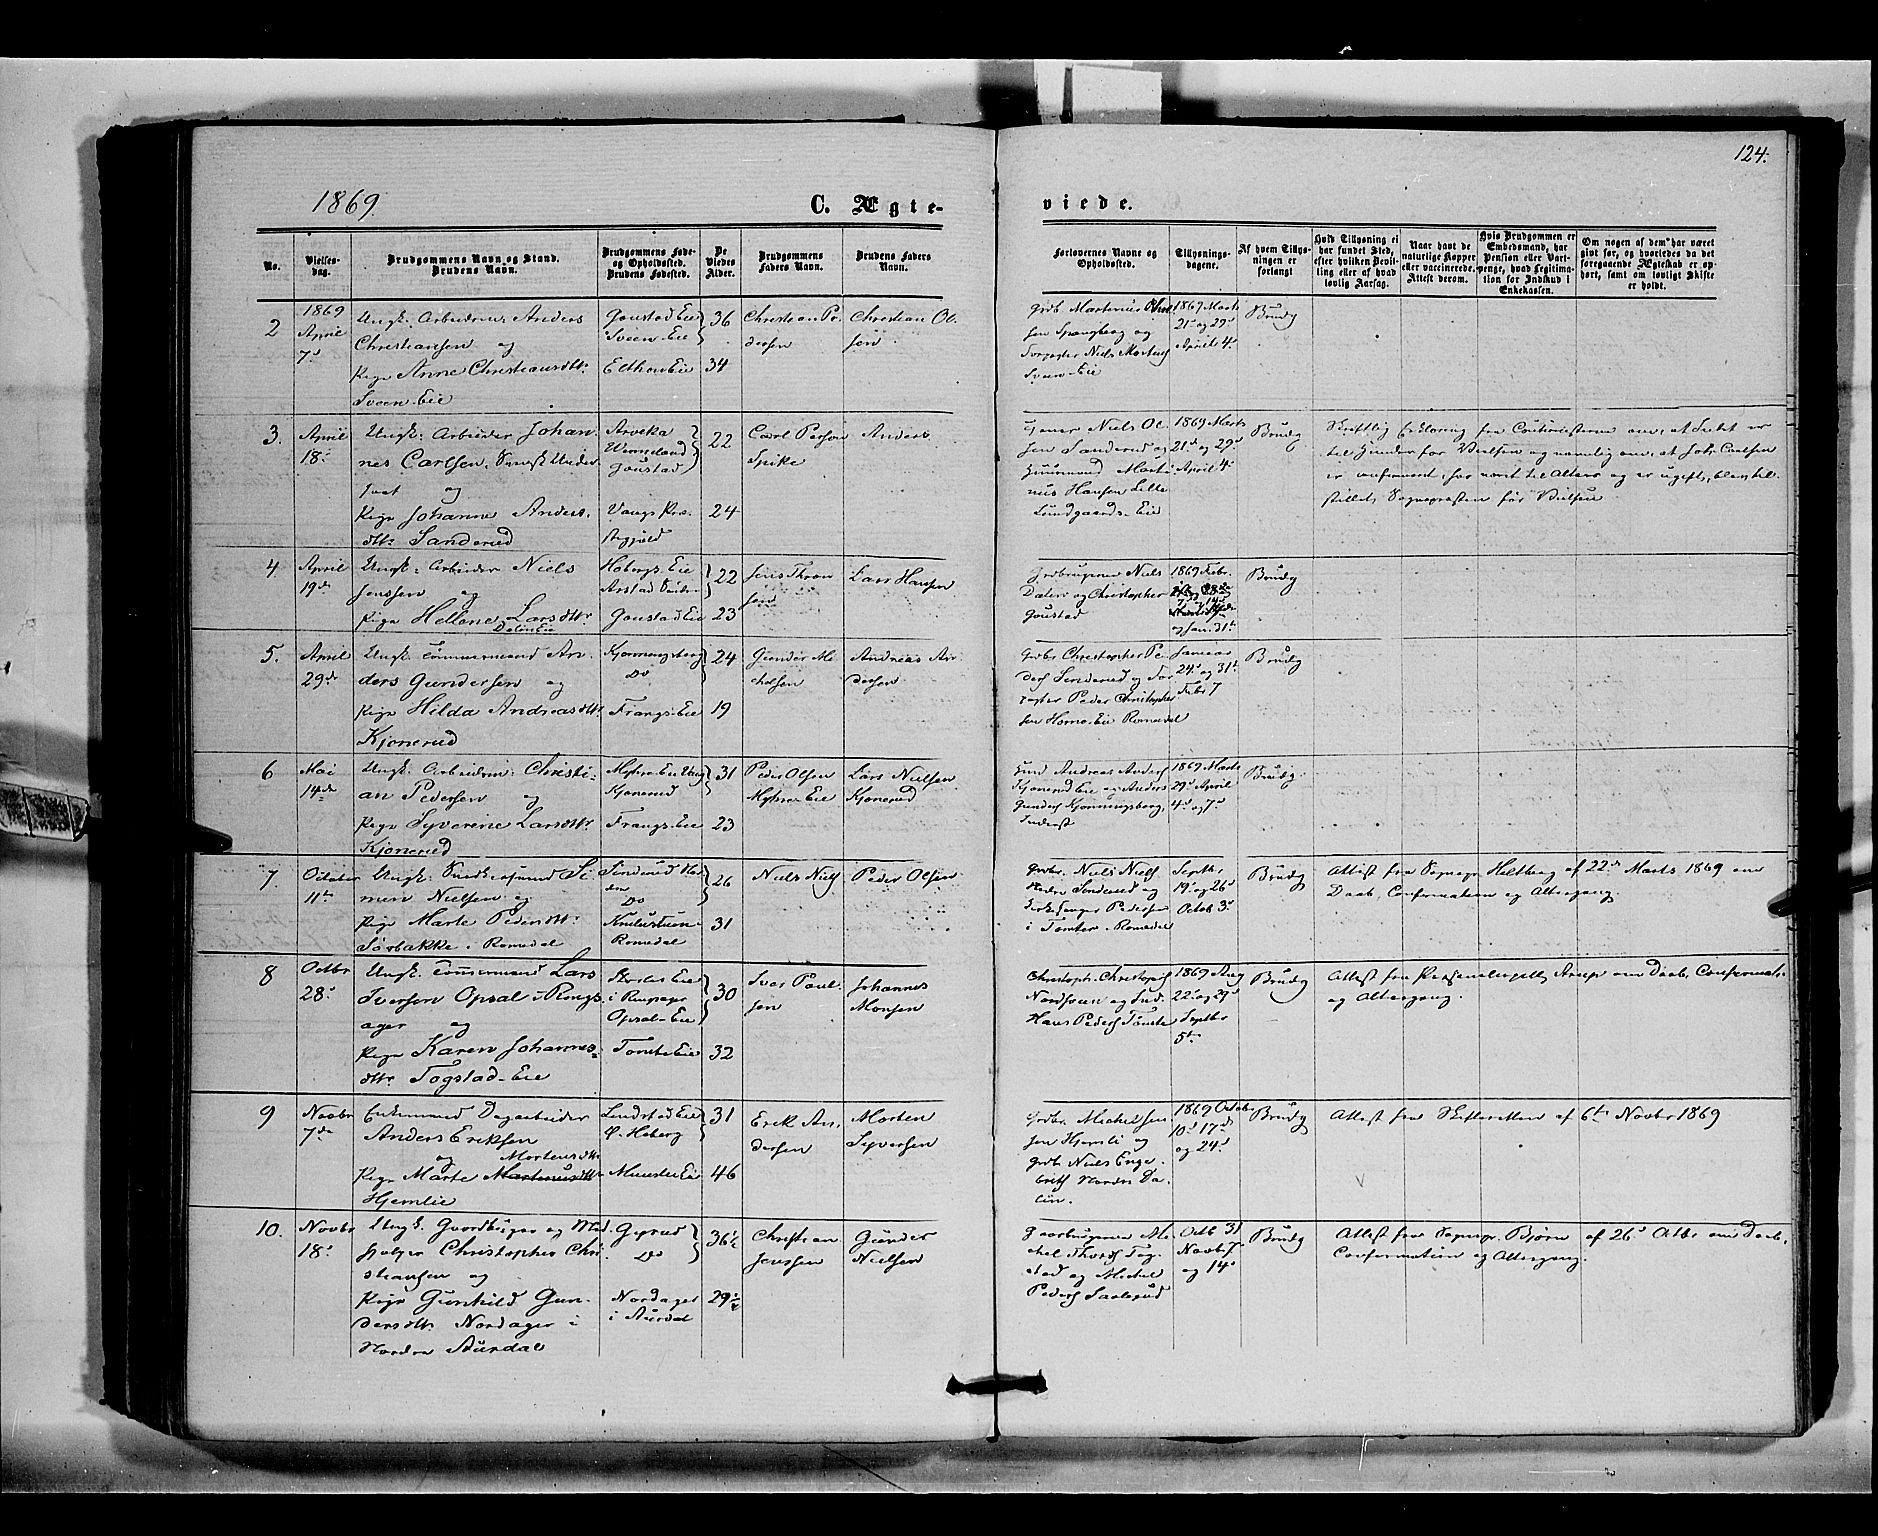 124.
1869
C. Ægte-
viede.
No.
Vielses-
dag.
Brudgommens Navn og Stand.
Brudens Navn.
Brudgommens Føde-
og Opholdssted.
Brudens Fødested.
De
Viedes
Alder.
Brudgommens
Faders Navn.
Brudens Faders
Navn.
Forlovernes Navne og
Opholdssted.
Tillysnings-
dagene.
Af hvem Tillys-
ningen er
forlangt
Hvis Tillysning ei
har fundet Sted,
efter hvilken Bevil-
ling eller af hvad
lovlig Aarsag.
Naar havt de
naturlige Kopper
eller vaccinerede.
Attest derom.
Hvis Brudgommen er
Embedsmand, har
Pension eller Vart-
penge, hvad Legitima-
tion for Indskud i
Enkekassen.
Om nogen af dem har været
givt før, og hvorledes da det
foregaaende Ægteskab er op-
hørt, samt om lovligt Skifte
er holdt.
2
1869
April
7d
Ungk. Arbeidsm Anders
Christiansen og
Pige Anne Christiansdtr
Sveen-Eie
Gaustad Eie
Sveen-Eie
Elthon Eie
36
34
Christian Pe-
dersen
Christian Ol-
sen
Grdb. Martenus
sen Spangberg og
Niels Martens
Sveen-Eie
1869 Marts
21d og 29d
April 4d
Brudg
3.
April
18d
Ungk: Arbeider Johan-
nes Carlsen, Svensk Under-
saat og
Pige Johanne Anders-
dtr Sanderud
Arveka
Wermland
Gaustad
Vangs Præ-
stegjeld
22
24
Carl Person
Spike
Anders
Niels Ol-
sen Sanderud og
Huusmand Marti-
nus Hansen Lille
Lundgaards-Eie
1869 Marts
21d og 29d
April 4d
Brudg
Skriftlig Erklæring fra Cautionisterne om, at Intet er
til Hinder for Vielsen og navnlig om, at Joh. Carlsen
er confirmeret, har været til Alters og er ugift, blev til-
stillet Sognepræsten før Vielsen
4
April
19de
Ungk: Arbeider Niels
Jenssen og
Pige Hellene Larsdtr
Dalen Eie
Hobergs-Eie
Arstad
Gaustad Eie
22
23
Jens Thron
sen
Lars Hansen
Grdbrugerne Niels
Dalen og Christopher
Gaustad
1869 Febr.
og Jan. 31te
Brudg
5.
April
29de
Ungk. Tømmermand An-
ders Gundersen og
Pige Hilda Andreasdtr
Kjonerud
Kjonningsberg
Do
Frangs-Eie
24
19
Gunder Mi-
chelsen
Andreas An-
dersen
Grdbr Christopher Pe-
ders Sinderud og For
Peder Christopher
sen Horne-Eie Romedal
Januar
24d og 31te
Febr 7
Brudg
6
Mai
14de
Ungk. Arbeidsm. Christi-
an Pedersen og
Pige Syverine Larsdtr
Kjonerud
Myhre-Eie Vang
Kjonerud
Frangs-Eie
31
23
Peder Olsen
Myhre Eie
Lars Nielsen
Kjonerud
Andreas Anders
Kjonerud Eie og Anders
Gunders Kjonningsberg,
1869 Marts
29d April
4d og 7d
Brudg.
7.
October
11te
Ungk: Si-
men Nielsen og
Pige Marte Pedersdtr
Sørbakke i Romedal
Sinderud Nor-
den
Do
Romedal
26
31
Niels Niels
Peder Olsen
Gaardbr. Niels Niels
Sinderud og
Pedersen
i Tomter. Romedal
Septbr
19d og 26d
Octob 3d
Brudg
Attest fra Sognepr. Heltberg af 22de Marts 1869 om
Daab, Confirmation og Altergang.
8
Octbr
28d
Ungk. Tømmermand Lars
Iversen Opsal i Rings-
ager og
Pige Karen Johannes-
dtr Togstad-Eie
Eie
i Ringsager
Opsal-Eie
Tomte Eie
30
32
Iver Paul-
sen
Johannes
Monsen
Christoph. Christophs
Nordsveen og Ind.
Hans Peders Tomte
1869 Aug
22d og 29d
Septbr
5te
Brudg
Attest fra Personelcapellan Arup om Daab, Confirmat.
og Altergang.
9
Novbr
7de
Enkemand Dagarbeider
Anders Eriksen
og Mortensdtr
Pige Marte Martinusdtr
Hjemlie
Lindstad Eie
P. Hoberg
Munster Eie
31
46
Erik An-
dersen
Morten
Syversen
Grdbr. Michel Jen-
sen Hjemli og
Grdb Niels Enge-
brits Nordre Da-
len.
1869 Octobr
10d 17de
og 24d
Brudg
Attest fra Skifteretten af 6te Novbr 1869
10.
Novbr
18d
Ungk. Gaardbruger og Med-
hjelper Christopher Chri-
stiansen og
Pige Gunhild Gun-
dersdtr Nordager i
Nordre Aurdal
Gaprud
Do
Nordager
i Aurdal
36½
29½
Christian
Jenssen
Gunder
Nielsen
Gaardbrugerne Mi-
chel Thords Tog-
stad og Michel
Peders Saalerud
Octb 31
Novbr 7
og 14d
Brudg
Attest fra Sognepr. Bjørn af 26d Octbr om Daab,
Confirmation og Altergang.